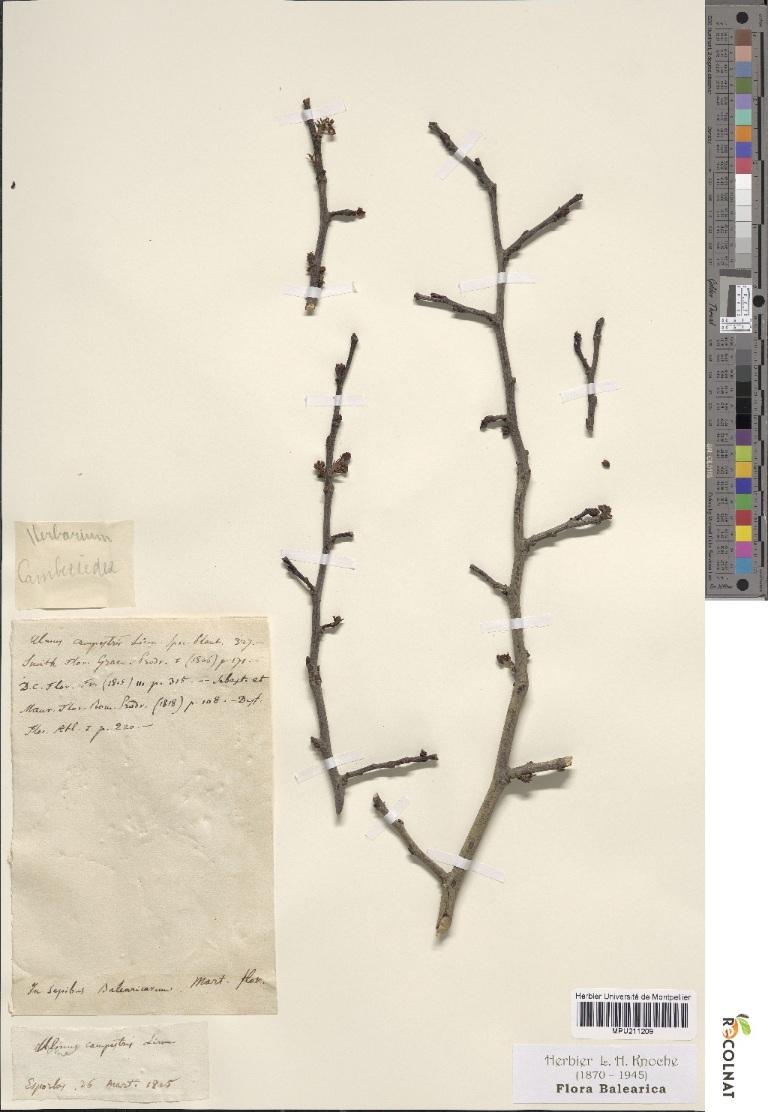 Herbarium
Cambessedes
Ulmus campestris Linn. spec. plant. 327.—
Smith Flor. Graec. Prodr. I (1806) p. 171.—
D.C. Flor. Fr. (1815) III p. 315.— Sebast. et
Maur. Flor. Rom. Prodr. (1818) p. 108.— Desf.
Flor. Atl. I p. 220.—
In Sepibus Balearicarum. Mart. flor.
Ulmus campestris Linn
Esporlas, 26 Mart. 1825
Herbier Université de Montpellier
MPU211209
Herbier L. H. Knoche
(1870 - 1945)
Flora Balearica
RECOLNAT